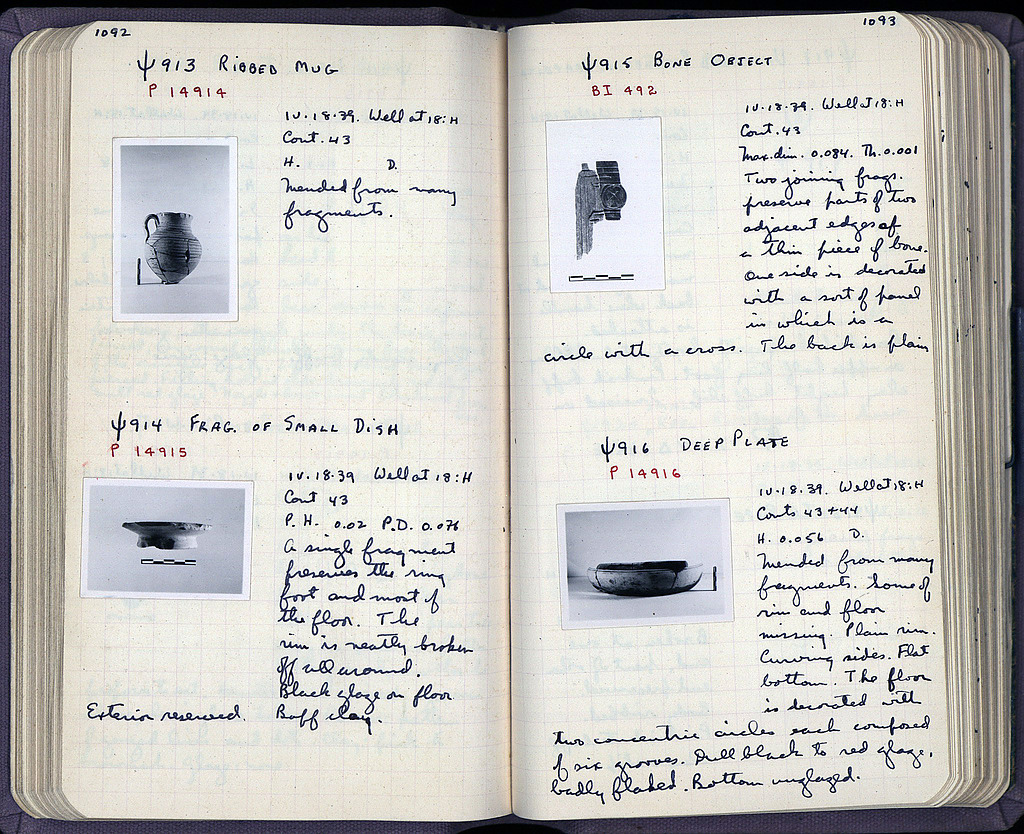 1092
Ψ913 RIBBED MUG
P 14914
IV.18.39. Well at 18:H
Cont. 43
H. D.
Mended from many
fragments.
Ψ914 FRAG. OF SMALL DISH
P 14915
IV.18.39 Well at 18:H
Cont 43
P.H. 0.02 P.D. 0.076
A single fragment
preserves the ring
foot and most of
the floor. The
rim is neatly broken
off all around.
Black glaze on floor
Exterior reserved. Buff clay.
1093
Ψ915 BONE OBJECT
BI 492
IV.18.39. Well at 18:H
Cont. 43
Max. dim. 0.084. Th. 0.001
Two joining frags.
preserve parts of two
adjacent edges of
a thin piece of bone.
One side is decorated
with a sort of panel
in which is a
circle with a cross. The back is plain
Ψ916 DEEP PLATE
P 14916
IV.18.39. Well at 18:H
Conts 43+44
H. 0.056 D.
Mended from many
fragments. Some of
rim and floor
missing. Plain rim.
Curving sides. Flat
bottom. The floor
is decorated with
two concentric circles each composed
of six grooves. Dull black to red glaze,
badly flaked. Bottom unglazed.